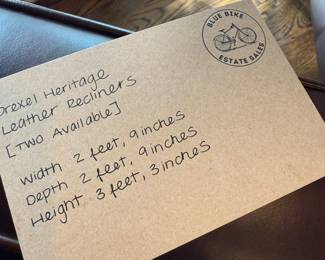 BLUE BIKE
ESTATE SALES
Drexel Heritage
Leather Recliners
[Two Available]
Width 2 feet, 9 inches
Depth 2 feet, 9 inches
Height 3 feet, 3 inches